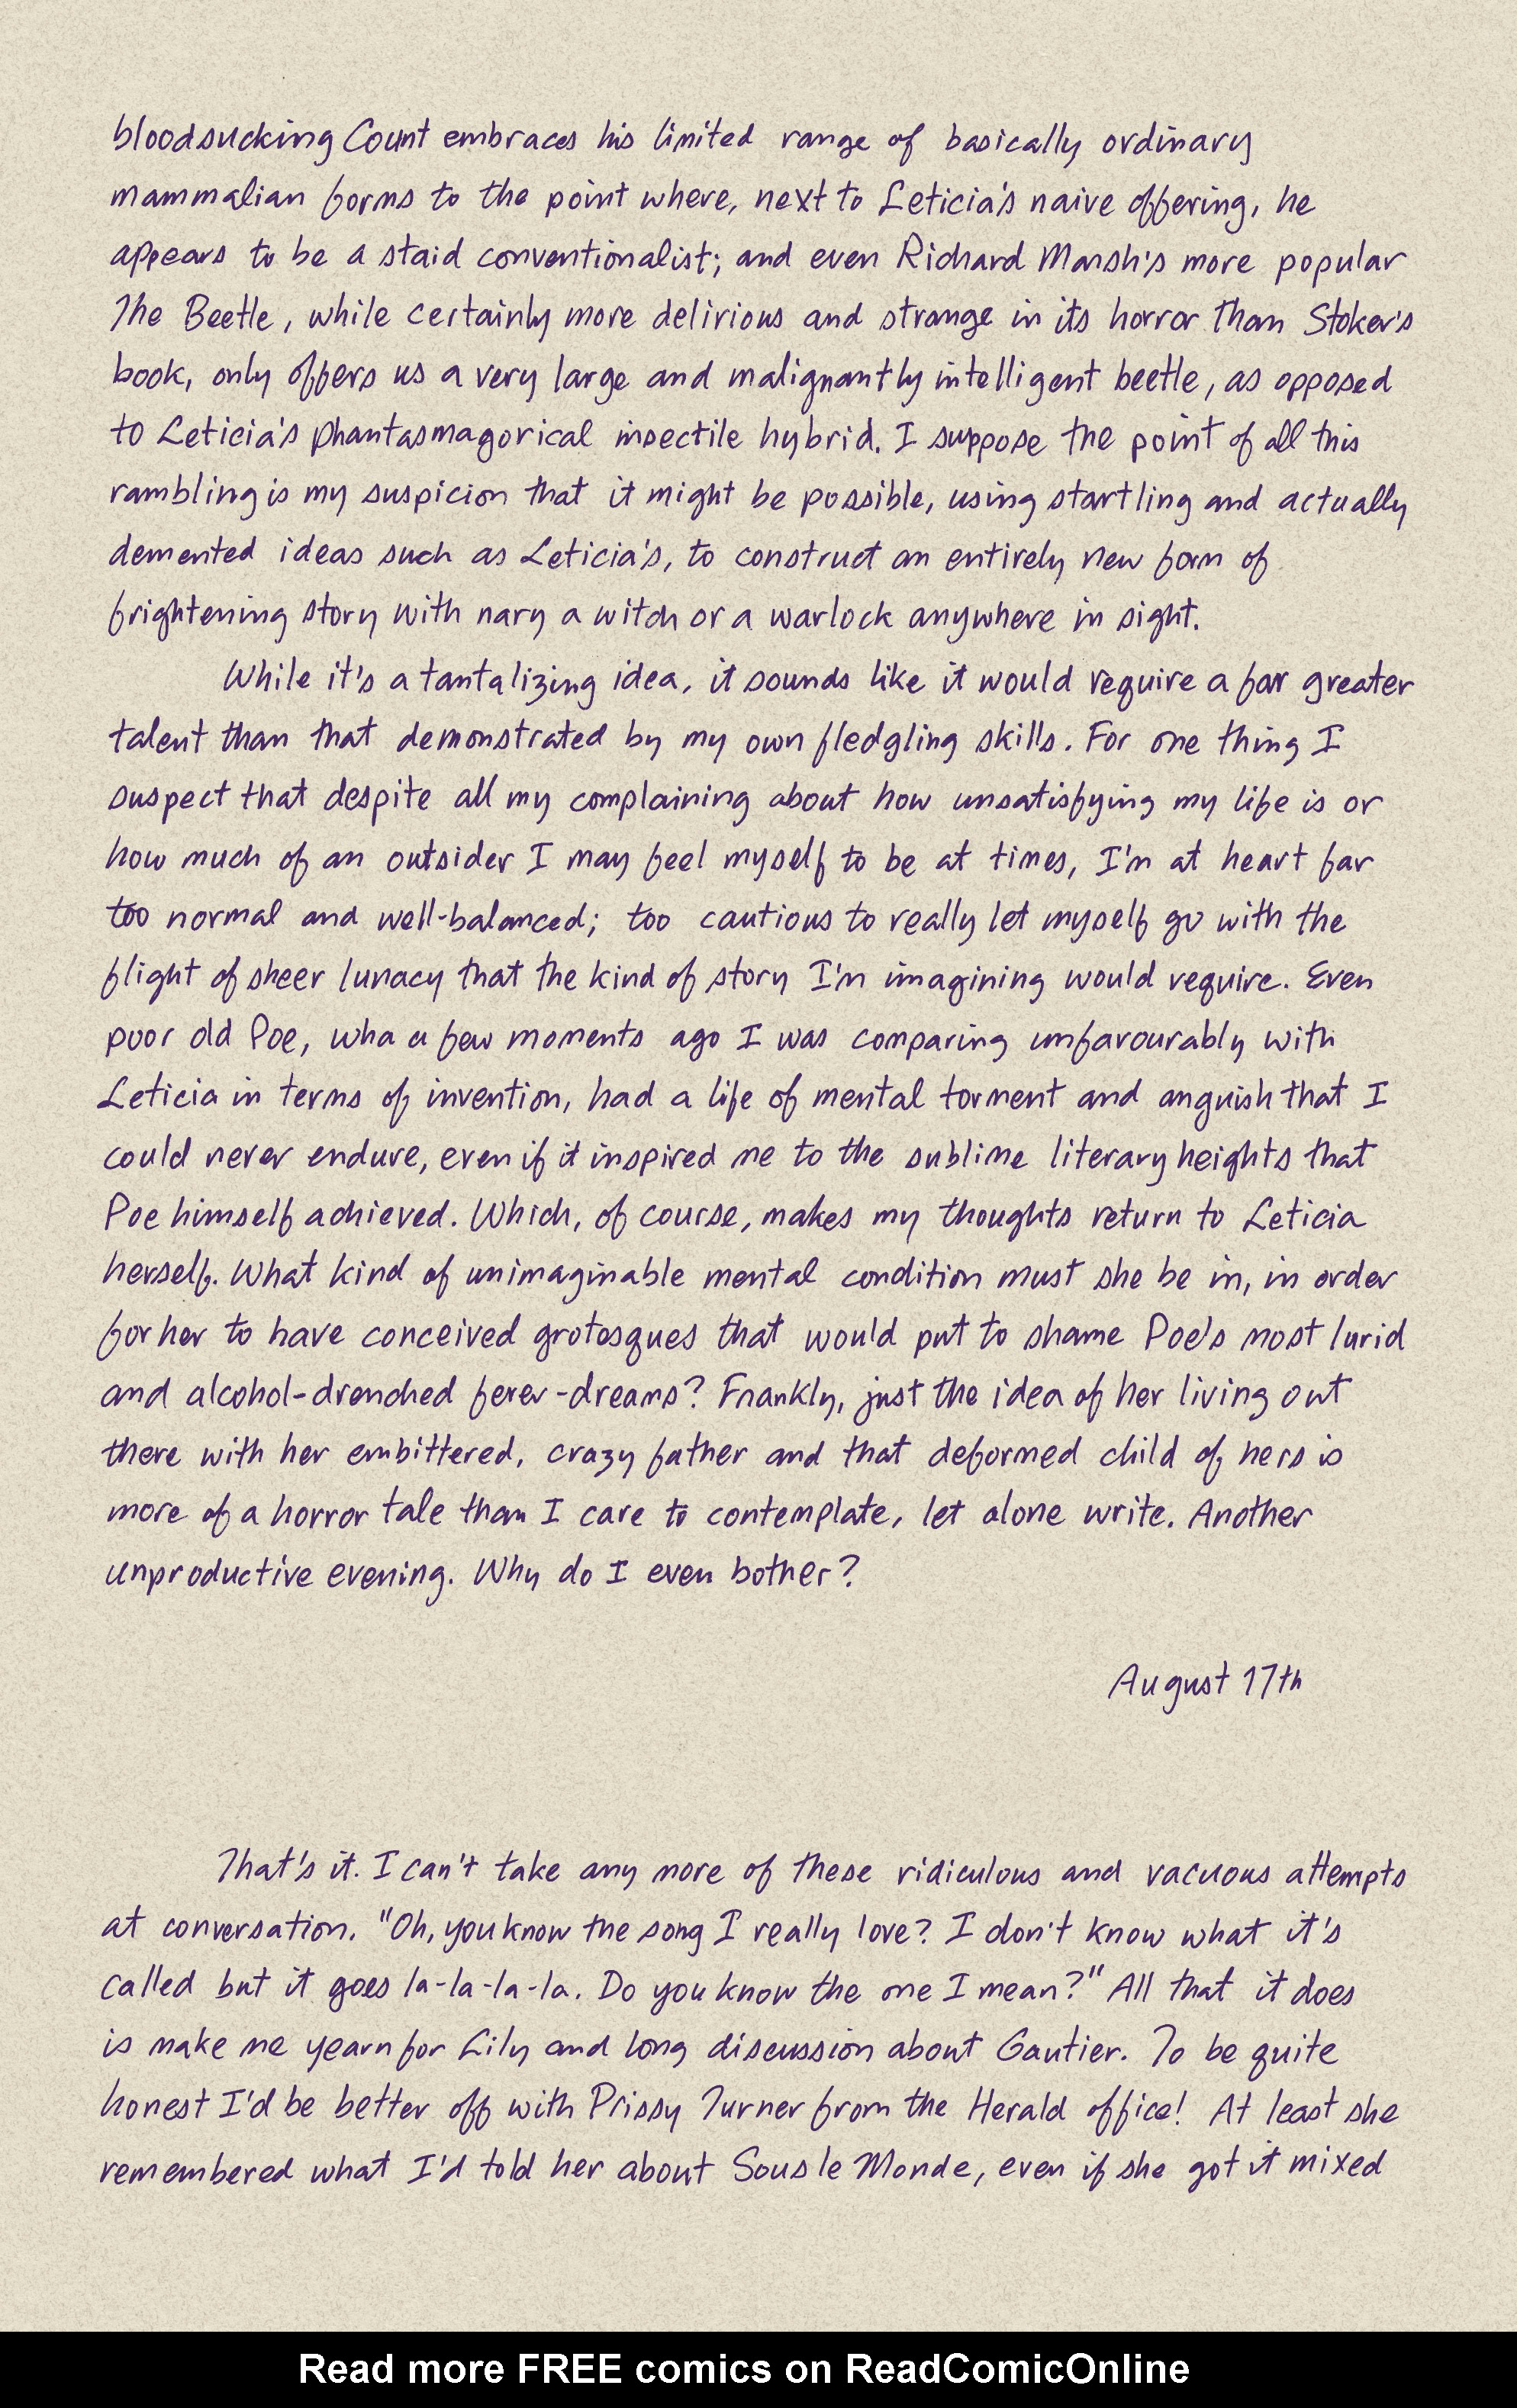 bloodsucking Count embraces his limited range of basically ordinary
mammalian forms to the point where, next to Leticia's naive offering, he
appears to be a staid conventionalist; and even Richard Marsh's more popular
The Beetle, while certainly more delirious and strange in its horror than Stoker's
book, only offers us a very large and malignantly intelligent beetle, as opposed
to Leticia's phantasmagorical insectile hybrid. I suppose the point of all this
rambling is my suspicion that it might be possible, using startling and actually
demented ideas such as Leticia's, to construct an entirely new form of
frightening story with nary a witch or a warlock anywhere in sight.
While it's a tantalizing idea, it sounds like it would require a far greater
talent than that demonstrated by my own fledgling skills. For one thing I
suspect that despite all my complaining about how unsatisfying my life is or
how much of an outsider I may feel myself to be at times, I'm at heart far
too normal and well-balanced; too cautious to really let myself go with the
flight of sheer lunacy that the kind of story I'm imagining would require. Even
poor old Poe, who a few moments ago I was comparing unfavourably with
Leticia in terms of invention, had a life of mental torment and anguish that I
could never endure, even if it inspired me to the sublime literary heights that
Poe himself achieved. Which, of course, makes my thoughts return to Leticia
herself. What kind of unimaginable mental condition must she be in, in order
for her to have conceived grotesques that would put to shame Poe's most lurid
and alcohol-drenched fever-dreams? Frankly, just the idea of her living out
there with her embittered, crazy father and that deformed child of hers is
more of a horror tale than I care to contemplate, let alone write. Another
unproductive evening. Why do I even bother?
August 17th
That's it. I can't take any more of these ridiculous and vacuous attempts
at conversation. "Oh, you know the song I really love? I don't know what it's
called but it goes la-la-la-la. Do you know the one I mean?" All that it does
is make me yearn for Lily and long discussion about Gautier. To be quite
honest I'd be better off with Prissy Turner from the Herald office! At least she
remembered what I'd told her about Sous le Monde, even if she got it mixed
Read more FREE comics on ReadComicOnline